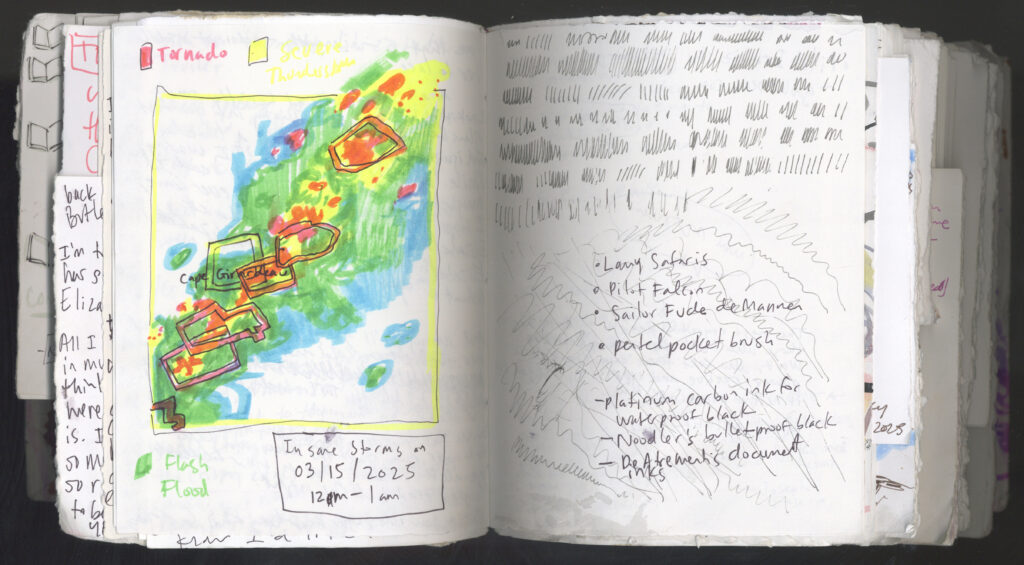 Tornado
Severe
Thunderstorm
Cape Girardeau
Flash
Flood
Insane Storms on
03/15/2025
12pm-1am
• Lamy Safaris
• Pilot Falcon
• Sailor Fude de Mannen
• pentel pocket brush
- platinum carbon ink for
waterproof black
- Noodler's bulletproof black
- De Atrementis document
inks
back
I'm t
has s
Eliza
All I
in my
think
here
is. I
so m
so r
to be
2025